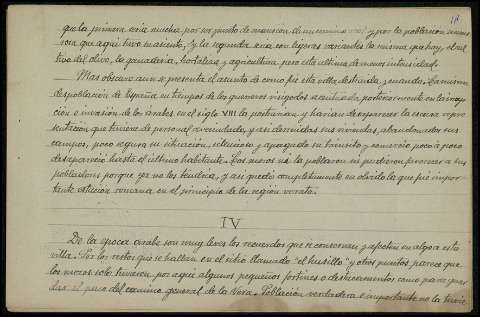 16
que la primera seria mucha, por ser punto de mansion de numeroso y por la poblacion nume
rosa que aqui tuvo su asiento, y la segunda seria con ligeras variantes la misma que hoy, el cul
tivo del olivo, la ganaderia, hortaliza y agricultura, pero esta ultima de menos intensidad.
Mas obscuro aun se presenta el asunto de como fue esta villa destruida y cuando. La misma
despoblacion de España en tiempos de los guerreros visigodos continuada, posteriormente en la irrup
ción e invasion de los arabes en el siglo VIII la postraron, y harian desaparecer la escasa repre
sentación que tuviera de personal avecindado, y asi derruidas sus viviendas, abandonados sus
campos, poco segura su situación, silencioso y apagado su transito y comercio poco a poco
desapareció hasta el ultimo habitante. Los moros ni la poblaron ni pudieron proveer a sus
pobladores porque ya no los tendria, y asi quedó completamente en olvido la que fue impor-
tante estacion romana en el principio de la región verata.
IV
De la epoca arabe son muy leves los recuerdos que se conservan y afecten en algo a esta
villa. Por los restos que se hallan en el sitio llamado "el husillo" y otros puntos parece que
los moros solo tuvieron por aqui algunos pequeños fortines o destacamentos como para guar
dar el paso del camino general de la Vera. Poblacion verdadera e importante no la tuvie